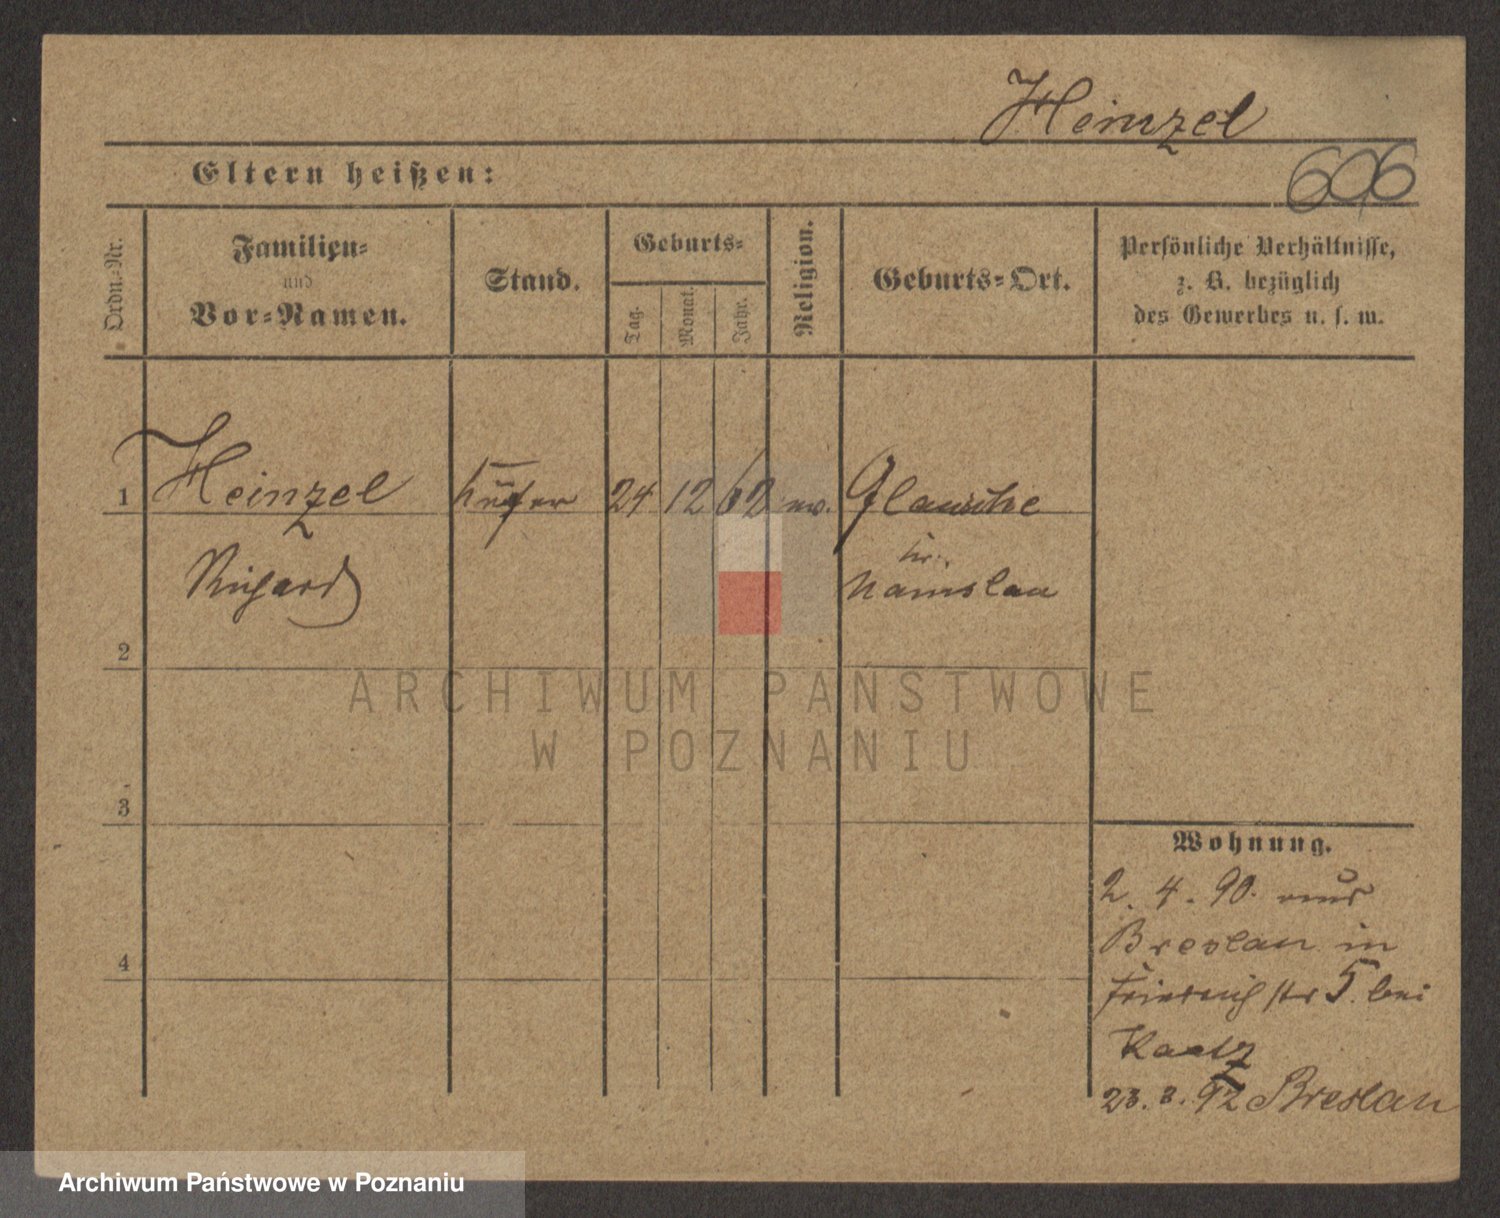 Heinzel
606
Eltern heißen:
Ordn.-Nr.
Familien-
und
Vor-Namen.
Stand.
Geburts-
Tag.
Monat.
Jahr.
Religion.
Geburts-Ort.
Persönliche Verhältnisse,
z. B. bezüglich
des Gewerbes u. s. w.
1 Heinzel 24 12 62 ev. Glausche
Richard
Kr.
Namslau
2
3
4
ARCHIWUM PAŃSTWOWE
W POZNANIU
Wohnung.
2. 4. 90. aus
Breslau in
Friedrichstr 5. bei
Kaatz
23. 3. 92 Breslau
Archiwum Państwowe w Poznaniu